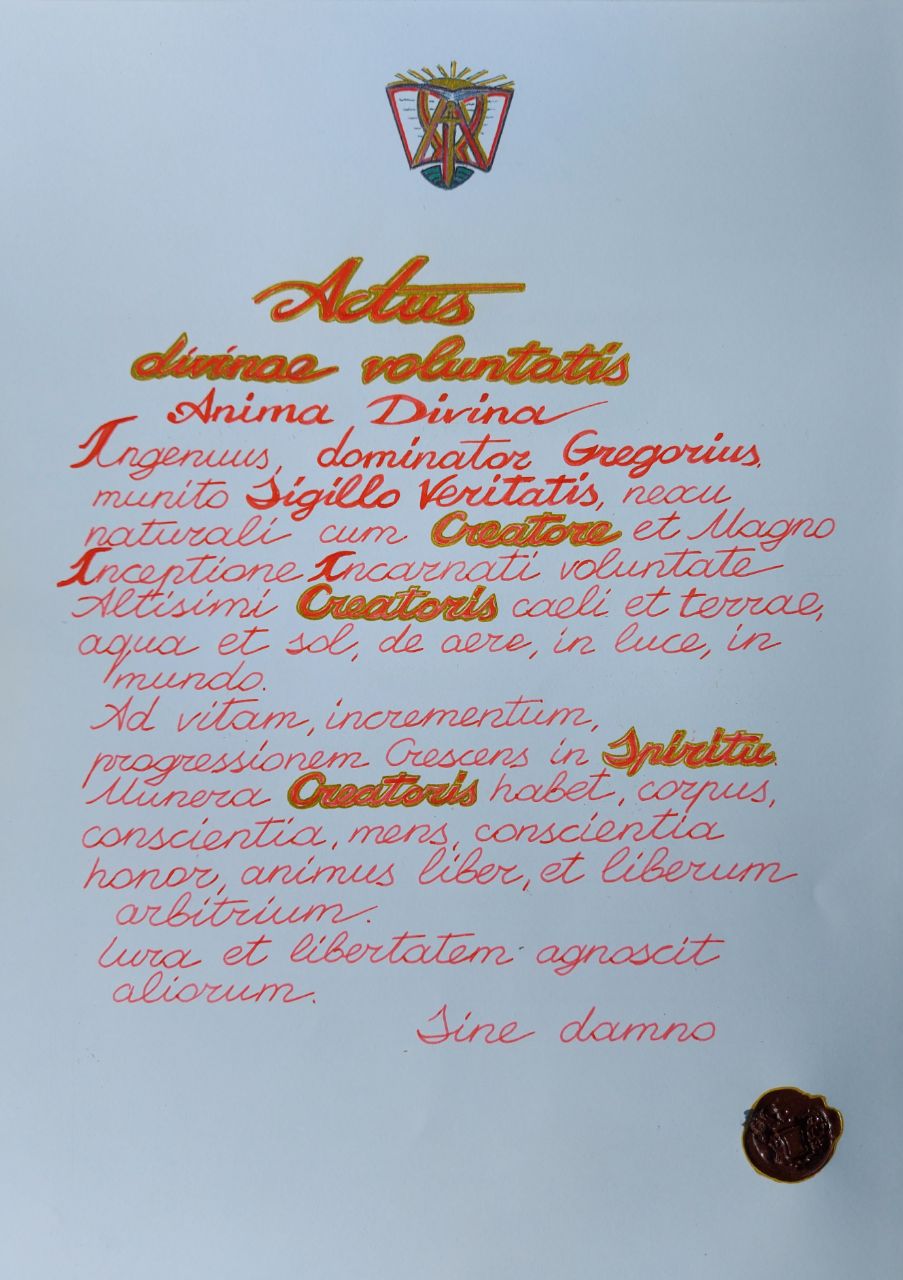 Actus
divinae voluntatis
Anima Divina
Ingenuus, dominator Gregorius,
munito Sigillo Veritatis, nexu
naturali cum Creatore et Magno
Inceptione Incarnati voluntate
Altisimi Creatoris caeli et terrae,
aqua et sol, de aere, in luce, in
mundo.
Ad vitam, incrementum,
progressionem Crescens in Spiritu.
Munera Creatoris habet, corpus,
conscientia, mens, conscientia
honor, animus liber, et liberum
arbitrium.
Iura et libertatem agnoscit
aliorum.
Sine damno